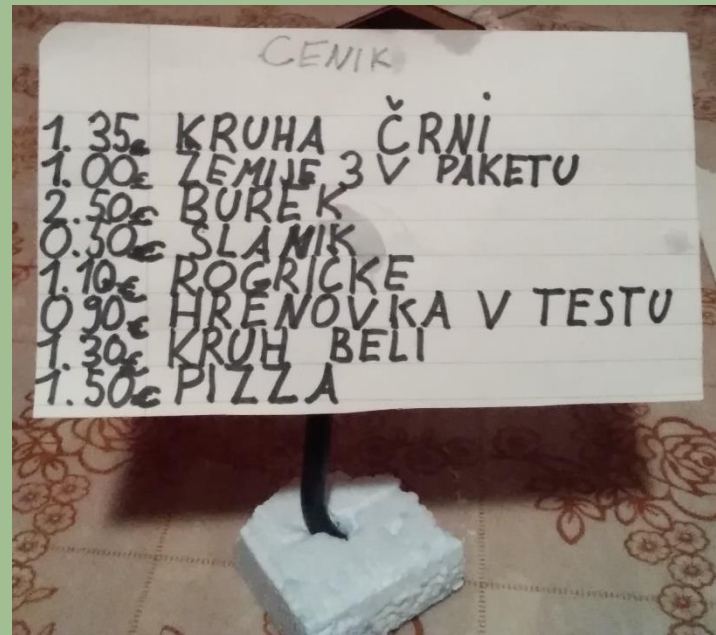 CENIK
1.35€ KRUHA ČRNi
1.00€ ZEMIJE 3 V PAKETU
2.50€ BUREK
0.50€ SLANIK
1.10€ ROGRIČKE
0 90€ HRENOVKA V TESTU
1.30€ KRUH BELI
1.50€ PIZZA